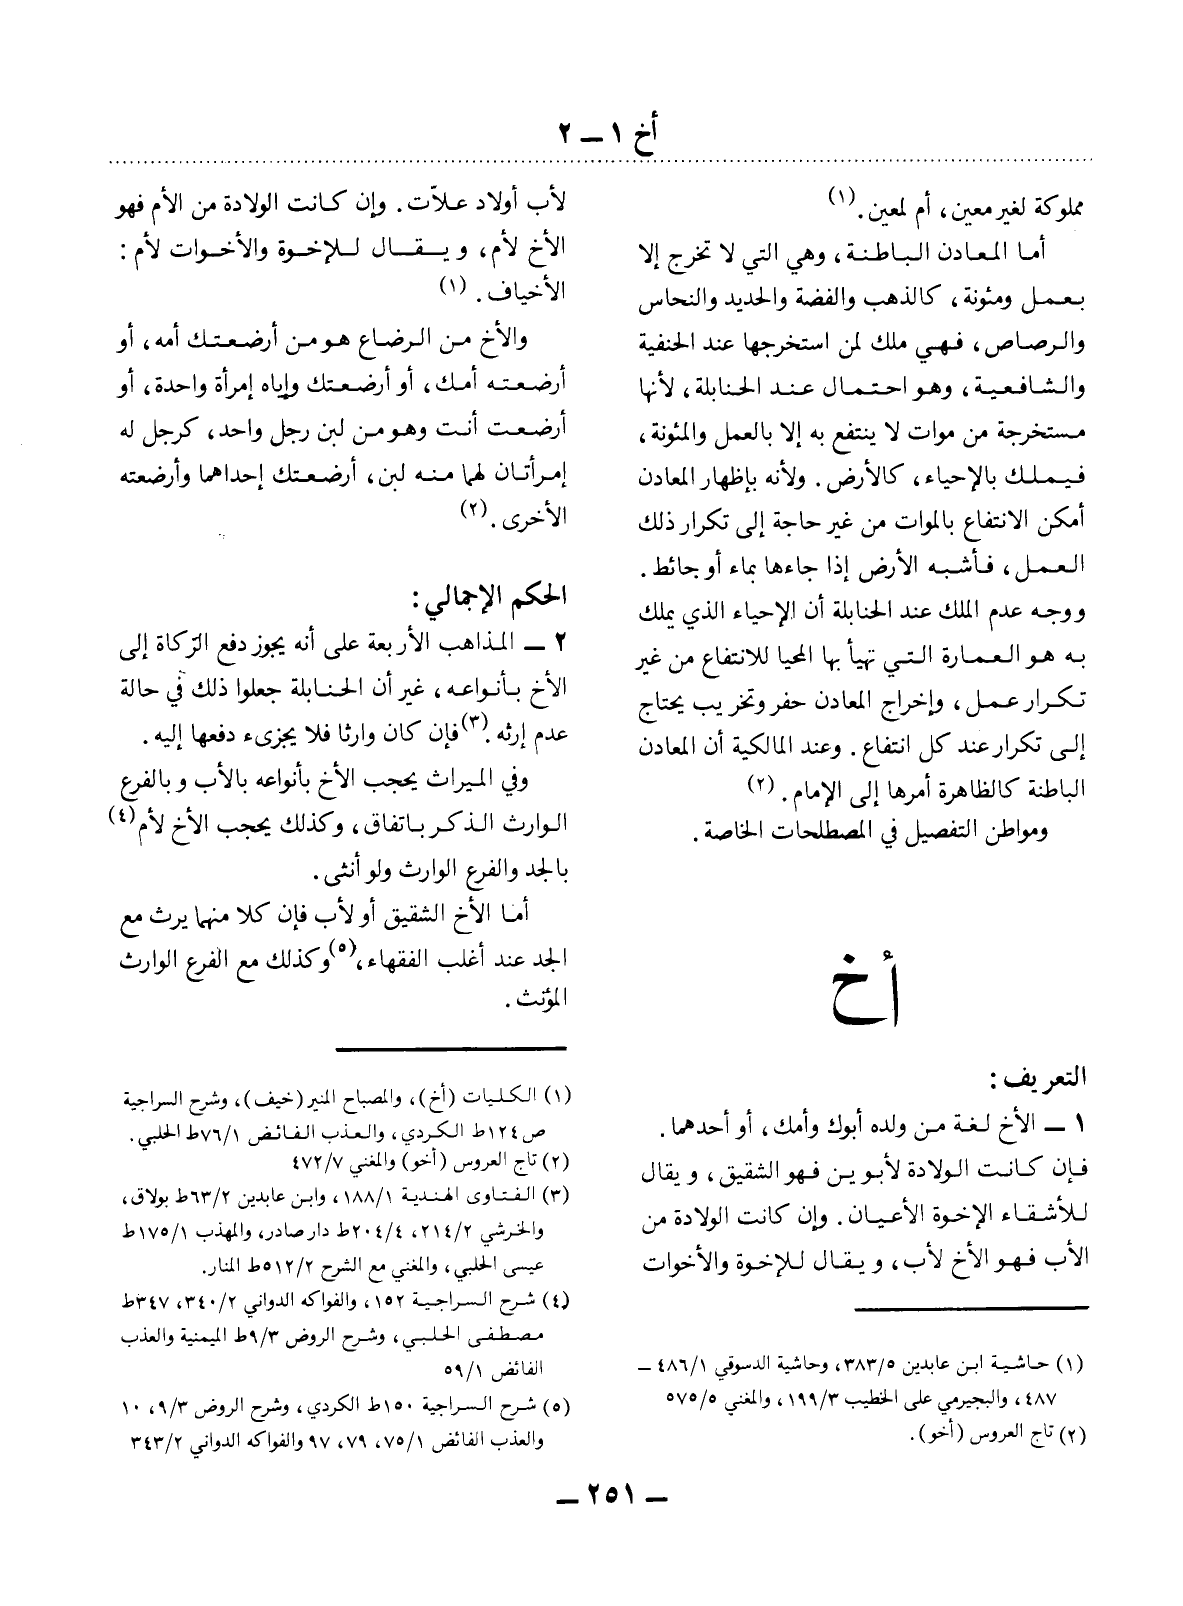 أخ ١ – ٢
مملوكة لغير معين، أم لمعين. (١)
أما المعادن الباطنة، وهي التي لا تخرج إلا
بعمل ومئونة، كالذهب والفضة والحديد والنحاس
والرصاص، فهي ملك لمن استخرجها عند الحنفية
والشافعية، وهو احتمال عند الحنابلة، لأنها
مستخرجة من موات لا ينتفع به إلا بالعمل والمئونة،
فيملك بالإحياء، كالأرض. ولأنه بإظهار المعادن
أمكن الانتفاع بالموات من غير حاجة إلى تكرار ذلك
العمل، فأشبه الأرض إذا جاءها بماء أو حائط.
ووجه عدم الملك عند الحنابلة أن الإحياء الذي يملك
به هو العمارة التي تهيأ بها المحيا للانتفاع من غير
تكرار عمل، وإخراج المعادن حفر وتخريب يحتاج
إلى تكرار عند كل انتفاع. وعند المالكية أن المعادن
الباطنة كالظاهرة أمرها إلى الإمام. (٢)
ومواطن التفصيل في المصطلحات الخاصة.
أخ
التعريف:
١ – الأخ لغة من ولده أبوك وأمك، أو أحدهما.
فإن كانت الولادة لأبوين فهو الشقيق، ويقال
للأشقاء الإخوة الأعيان. وإن كانت الولادة من
الأب فهو الأخ لأب، ويقال للإخوة والأخوات
(١) حاشية ابن عابدين ٣٨٣/٥، وحاشية الدسوقي ٤٨٦/١ –
٤٨٧، والبجيرمي على الخطيب ١٩٩/٣، والمغني ٥٧٥/٥
(٢) تاج العروس (أخو).
لأب أولاد علاّت. وإن كانت الولادة من الأم فهو
الأخ لأم، ويقال للإخوة والأخوات لأم:
الأخياف. (١)
والأخ من الرضاع هو من أرضعتك أمه، أو
أرضعته أمك، أو أرضعتك وإياه إمرأة واحدة، أو
أرضعت أنت وهو من لبن رجل واحد، كرجل له
إمرأتان لهما منه لبن، أرضعتك إحداهما وأرضعته
الأخرى. (٢)
الحكم الإجمالي:
٢ – المذاهب الأربعة على أنه يجوز دفع الزكاة إلى
الأخ بأنواعه، غير أن الحنابلة جعلوا ذلك في حالة
عدم إرثه. (٣) فإن كان وارثا فلا يجزىء دفعها إليه.
وفي الميراث يحجب الأخ بأنواعه بالأب وبالفرع
الوارث الذكر باتفاق، وكذلك يحجب الأخ لأم (٤)
بالجد والفرع الوارث ولو أنثى.
أما الأخ الشقيق أو لأب فإن كلا منهما يرث مع
الجد عند أغلب الفقهاء، (٥) وكذلك مع الفرع الوارث
المؤنث.
(١) الكليات (أخ)، والمصباح المنير (خيف)، وشرح السراجية
ص ١٢٤ ط الكردي، والعذب الفائض ٧٦/١ ط الحلبي.
(٢) تاج العروس (أخو) والمغني ٤٧٢/٧
(٣) الفتاوى الهندية ١٨٨/١، وابن عابدين ٦٣/٢ ط بولاق،
والخرشي ٢١٤/٢، ٢٠٤/٤ ط دار صادر، والمهذب ١٧٥/١ ط
عيسى الحلبي، والمغني مع الشرح ٥١٢/٢ ط المنار.
(٤) شرح السراجية ١٥٢، والفواكه الدواني ٣٤٠/٢، ٣٤٧ ط
مصطفى الحلبي، وشرح الروض ٩/٣ ط الميمنية والعذب
الفائض ٥٩/١
(٥) شرح السراجية ١٥٠ ط الكردي، وشرح الروض ٩/٣، ١٠
والعذب الفائض ٧٥/١، ٧٩، ٩٧ والفواكه الدواني ٣٤٣/٢
– ٢٥١ –